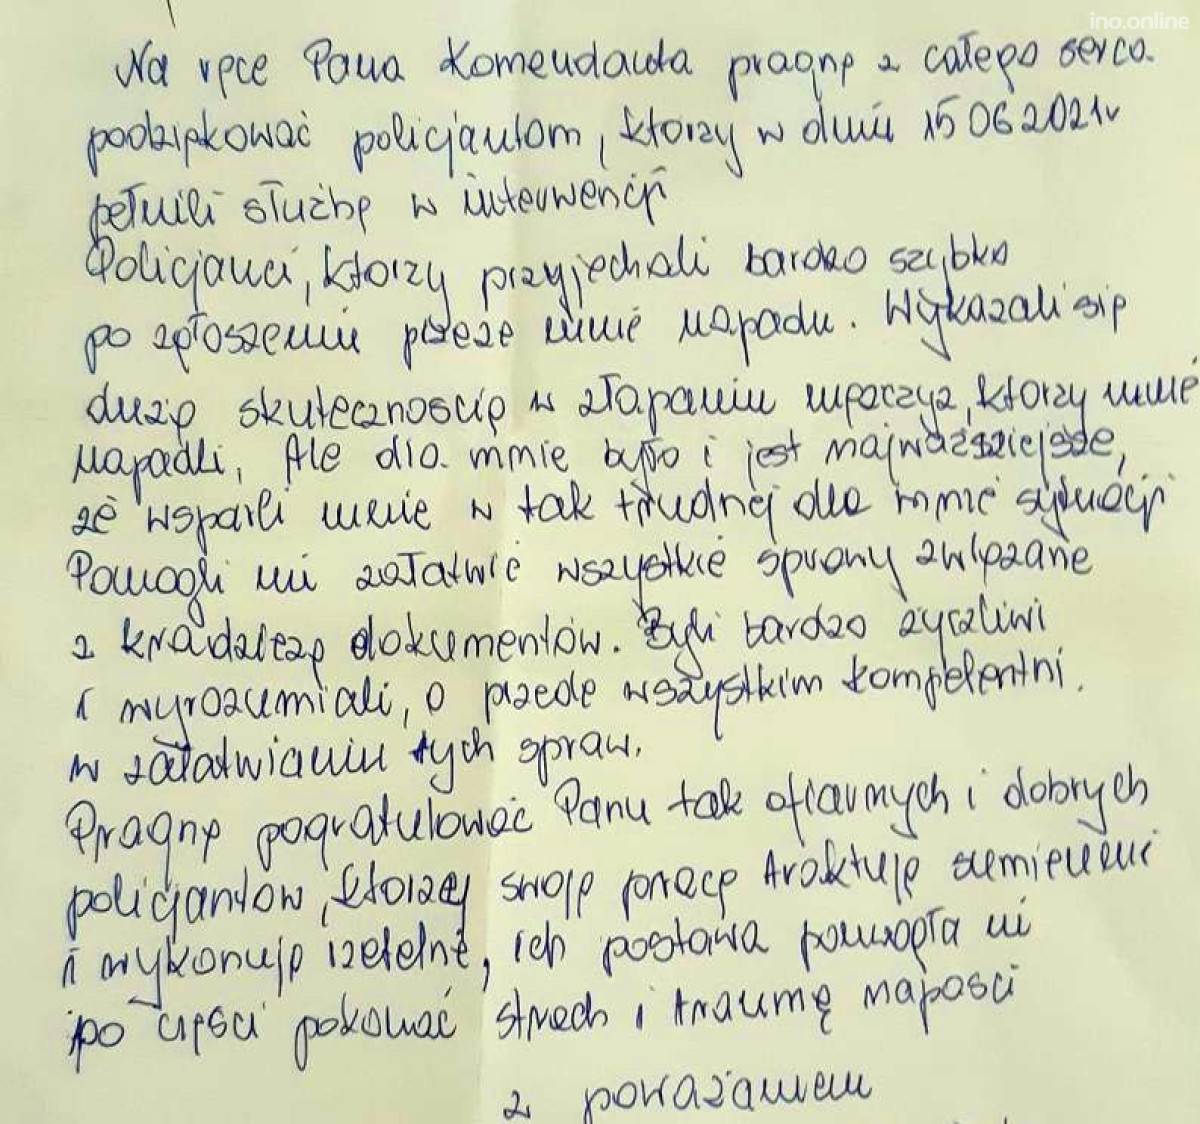 ino.online
Na ręce Pana Komendanta pragnę z całego serca
podziękować policjantom, którzy w dniu 15 06 2021r
pełnili służbę w interwencji
Policjanci, którzy przyjechali bardzo szybko
po zgłoszeniu przeze mnie napadu. Wykazali się
dużą skutecznością w złapaniu mężczyz, którzy mnie
napadli. Ale dla mnie było i jest najważniejsze,
że wsparli mnie w tak trudnej dla mnie sytuacji
Pomogli mi załatwić wszystkie sprawy związane
z kradzieżą dokumentów. Byli bardzo życzliwi
i wyrozumiali, a przede wszystkim kompetentni.
w załatwianiu tych spraw.
Pragnę pogratulować Panu tak ofiarnych i dobrych
policjantów, którzy swoją pracę traktują sumiennie
i wykonują rzetelnie, ich postawa pomogła mi
po części pokonać strach i traumę napaści
z poważaniem